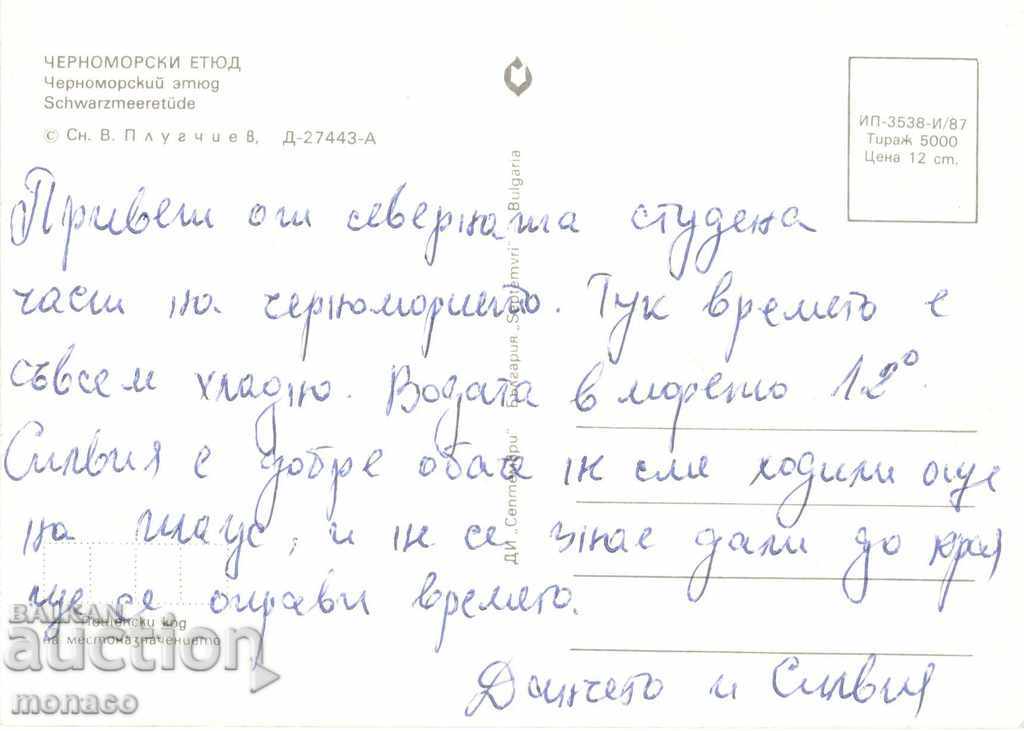 ЧЕРНОМОРСКИ ЕТЮД
Черноморский этюд
Schwarzmeeretüde
© Сн. В. Плугчиев, Д-27443-А
ИП-3538-И/87
Тираж 5000
Цена 12 ст.
ДИ „Септември“ България „Septemvri“ Bulgaria
Привет от северната студена
част на черноморието. Тук времето е
съвсем хладно. Водата в морето 12°.
Силвия е добре обаче не сме ходили още
на плаус, и не се знае дали до края
ще се оправи времето.
Данчето и Силвия
Пощенски код
на местоназначението
BALKAN
auction
monaco